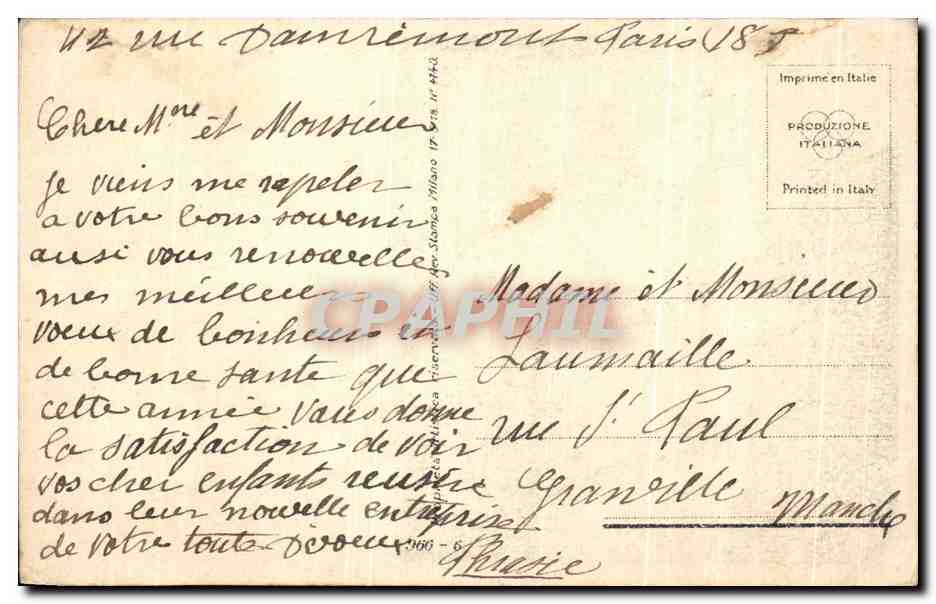 42 rue Damrémont Paris 18
Chere Mme et Monsieur
je viens me rapeler
a votre bons souvenir
ausi vous renouvelle
mes meilleurs
voeux de bonheur et
de bonne sante que
cette année vous donne
la satisfaction de voir
vos cher enfants reusire
dans leur nouvelle entreprise
de votre toute Devouee
Phrasie
Madame et Monsieur
Laumaille
rue St Paul
Granville Manche
Imprimé en Italie
PRODUZIONE
ITALIANA
Printed in Italy
riservata Uff. Rev. Stampa Milano
966 - 6
CPAPHIL